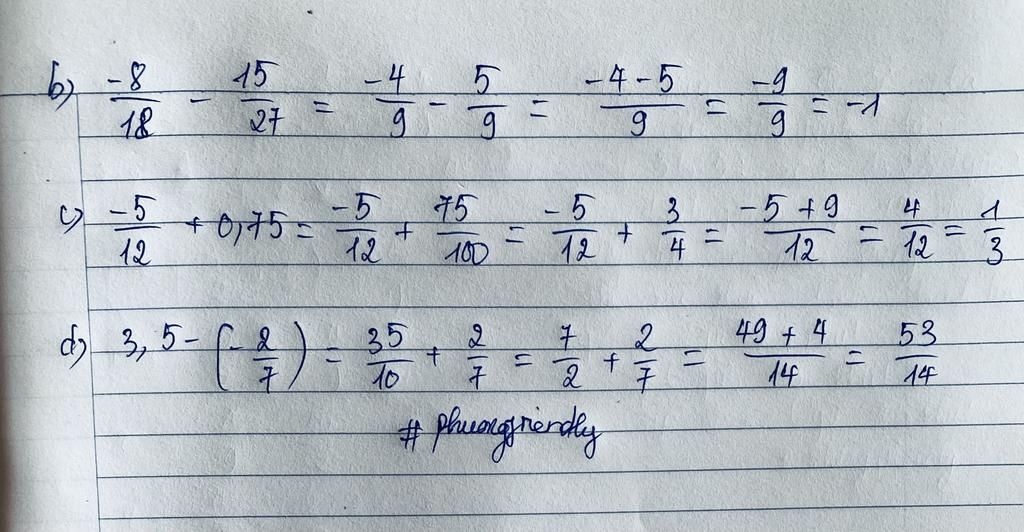 b) -8/18 - 15/27 = -4/9 - 5/9 = -4-5/9 = -9/9 = -1
c) -5/12 + 0,75 = -5/12 + 75/100 = -5/12 + 3/4 = -5+9/12 = 4/12 = 1/3
d) 3,5 - (-2/7) = 35/10 + 2/7 = 7/2 + 2/7 = 49+4/14 = 53/14
# phuongfriendly